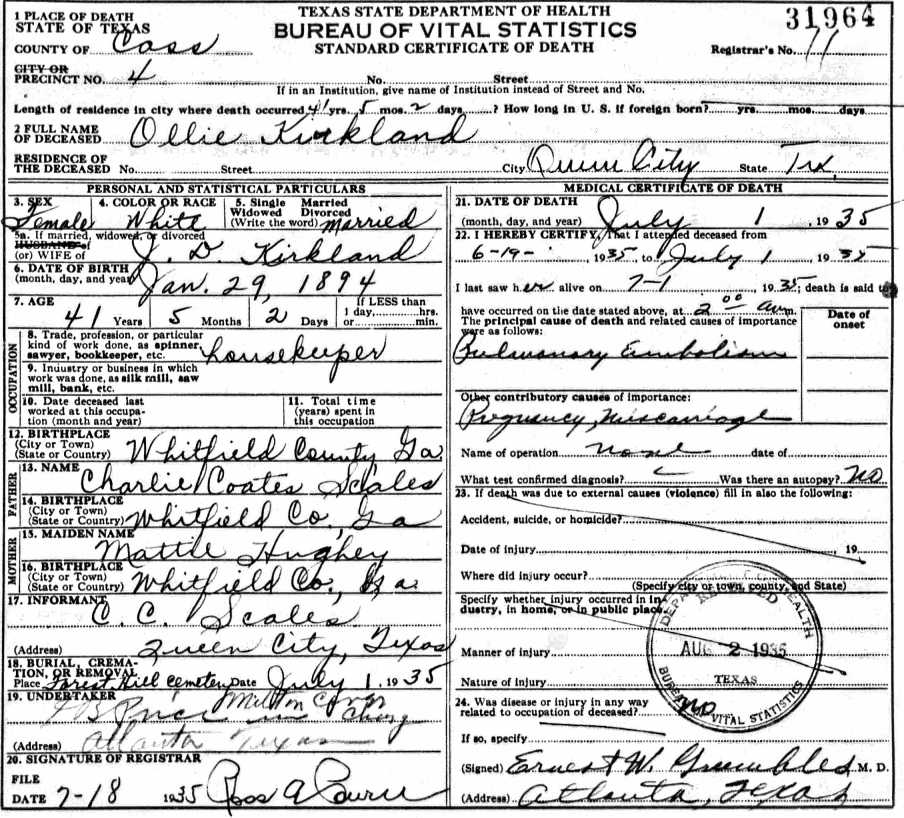 TEXAS STATE DEPARTMENT OF HEALTH
BUREAU OF VITAL STATISTICS
STANDARD CERTIFICATE OF DEATH
31964
Registrar's No. 11
1 PLACE OF DEATH
STATE OF TEXAS
COUNTY OF Cass
CITY OR
PRECINCT NO. 4 No. Street
If in an Institution, give name of Institution instead of Street and No.
Length of residence in city where death occurred 41 yrs. 5 mos. 2 days ? How long in U. S. if foreign born? yrs. mos. days
2 FULL NAME
OF DECEASED Ollie Kirkland
RESIDENCE OF
THE DECEASED No. Street City Queen City State Tex
PERSONAL AND STATISTICAL PARTICULARS
3. SEX
Female
4. COLOR OR RACE
White
5. Single Married
Widowed Divorced
(Write the word) Married
5a. If married, widowed, or divorced
HUSBAND of
(or) WIFE of J. D. Kirkland
6. DATE OF BIRTH
(month, day, and year) Jan. 29, 1894
7. AGE
41 Years 5 Months 2 Days
If LESS than
1 day, hrs.
or min.
OCCUPATION
8. Trade, profession, or particular
kind of work done, as spinner,
sawyer, bookkeeper, etc. housekeeper
9. Industry or business in which
work was done, as silk mill, saw
mill, bank, etc.
10. Date deceased last
worked at this occupa-
tion (month and year)
11. Total time
(years) spent in
this occupation
12. BIRTHPLACE
(City or Town)
(State or Country) Whitfield County Ga
FATHER
13. NAME
Charlie Coates Scales
14. BIRTHPLACE
(City or Town)
(State or Country) Whitfield Co, Ga
MOTHER
15. MAIDEN NAME
Mattie Hughey
16. BIRTHPLACE
(City or Town)
(State or Country) Whitfield Co, Ga.
17. INFORMANT
C. C. Scales
(Address) Queen City, Texas
18. BURIAL, CREMA-
TION, OR REMOVAL
Place Forest Hill Cemetery Date July 1, 1935
19. UNDERTAKER
Price Milton in Charg
(Address) Atlanta Texas
20. SIGNATURE OF REGISTRAR
FILE
DATE 7-18 1935 Ross A
MEDICAL CERTIFICATE OF DEATH
21. DATE OF DEATH
(month, day, and year) July 1, 1935
22. I HEREBY CERTIFY, That I attended deceased from
6-19-, 1935 to July 1, 1935
I last saw her alive on 7-1, 1935; death is said to
have occurred on the date stated above, at 2 00 Am.
The principal cause of death and related causes of importance
were as follows:
Date of
onset
Pulmonary Embolism
Other contributory causes of importance:
Pregnancy, Miscarriage
Name of operation None date of
What test confirmed diagnosis? Was there an autopsy? No
23. If death was due to external causes (violence) fill in also the following:
Accident, suicide, or homicide?
Date of injury 19
Where did injury occur?
(Specify city or town, county, and State)
Specify whether injury occurred in in-
dustry, in home, or in public place
Manner of injury
Nature of injury
24. Was disease or injury in any way
related to occupation of deceased? No.
If so, specify
(Signed) Ernest W. Grumbles M. D.
(Address) Atlanta, Texas
RECEIVED
AUG 2 1935
TEXAS
BUREAU OF VITAL STATISTICS